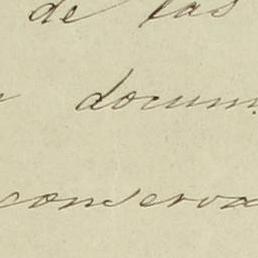 de las
docum
conserva